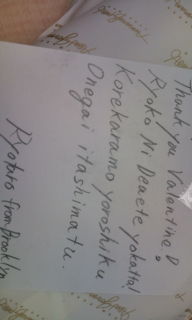 Thank you Valentine D
Ryoko Ni Deaete yokatta!
Korekaramo yoroshiku
Onegai itashimatu.
Ryotaro from Brooklyn